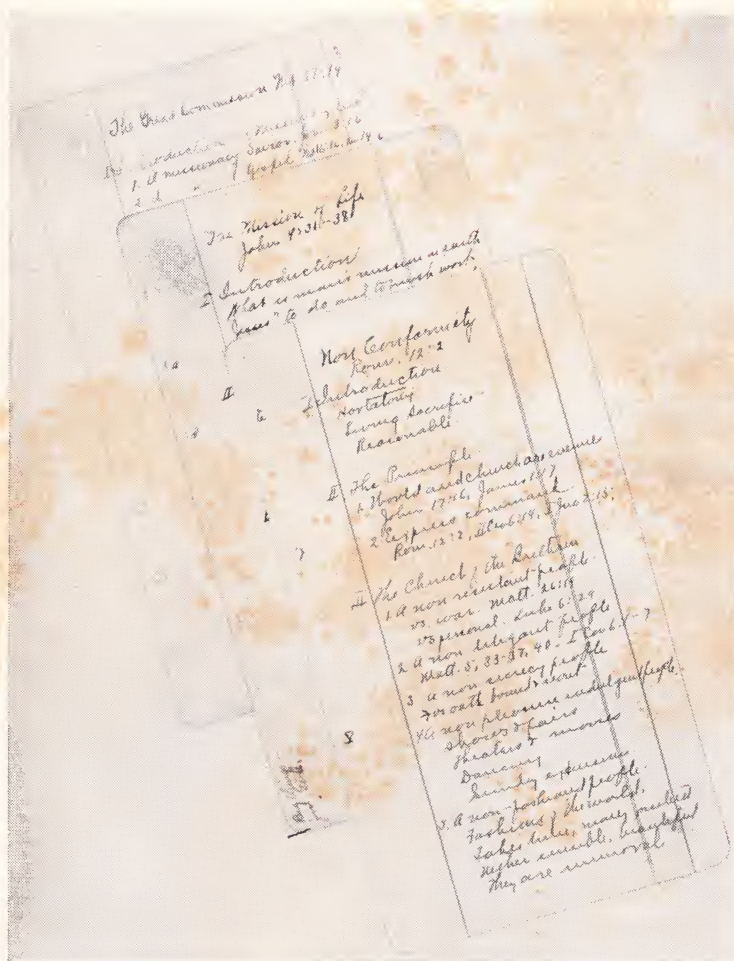 The Great Commission
Introduction
1. A missionary
2. A " Gospel
The Mission of Life
John 4:31-38
I Introduction
What is man's mission on earth
Jesus "to do and to work work,
II
Non Conformity
Rom. 12:2
I. Introduction
Hortatory
Living Sacrifice
Reasonable
II. The Principle
1. World and church
John 17:16, James
2. Express command.
Rom. 12:2,
III The Church of the Brethren
1. A non resistant people.
vs. war. Matt.
vs personal. Luke 6:29
2. A non litigant people
Matt. 5, 33-37, 40 - I Cor 6:1-7
3 A non secrecy people
oath bound secret
4. A non pleasure indulgent people.
Shows & fairs
Theaters & movies
Dancing
Sunday excursions
5. A non-fashioned people.
Fashions of the world,
Takes time, money
Neither sensible, beautiful
They are immoral